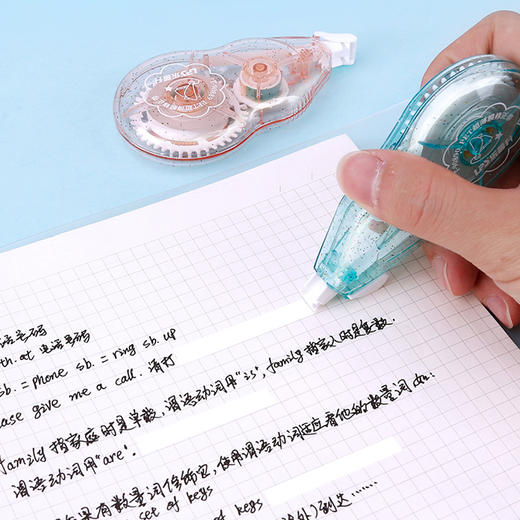 话号码
th. at 电话号码
sb. = phone sb. = ring sb. up
ease give me a call. 请打
family 指家庭时是单数,谓语动词用"is", family 指家人时是复数.
谓语动词用"are".
如果有数量词修饰它,使用谓语动词应看他的数量词 du:
set of keys
of keys
到达……